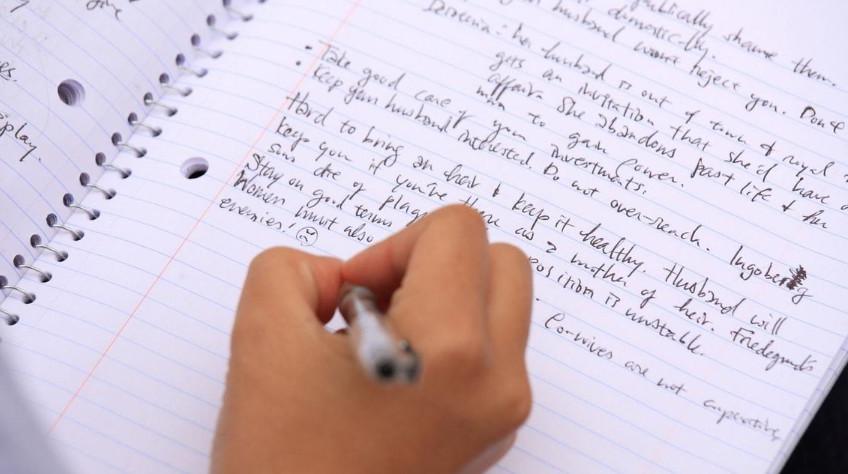 give
es.
splay.
publically shame them.
domestically.
husband won't reject you. Don't
her husband is out of town & royal
gets an invitation that she'd have a
affair. She abandons past life & her
man to gain power.
• Take good care of your investments.
• Keep your husband interested. Do not over-reach. Ingoberg
Hard to bring an heir & keep it healthy. Husband will
keep you if you're there as a mother of heir. Fredegund's
sons die of plag position is unstable.
Stay on good terms
Women must also Co-wives are not cooperative,
enemies! ☹